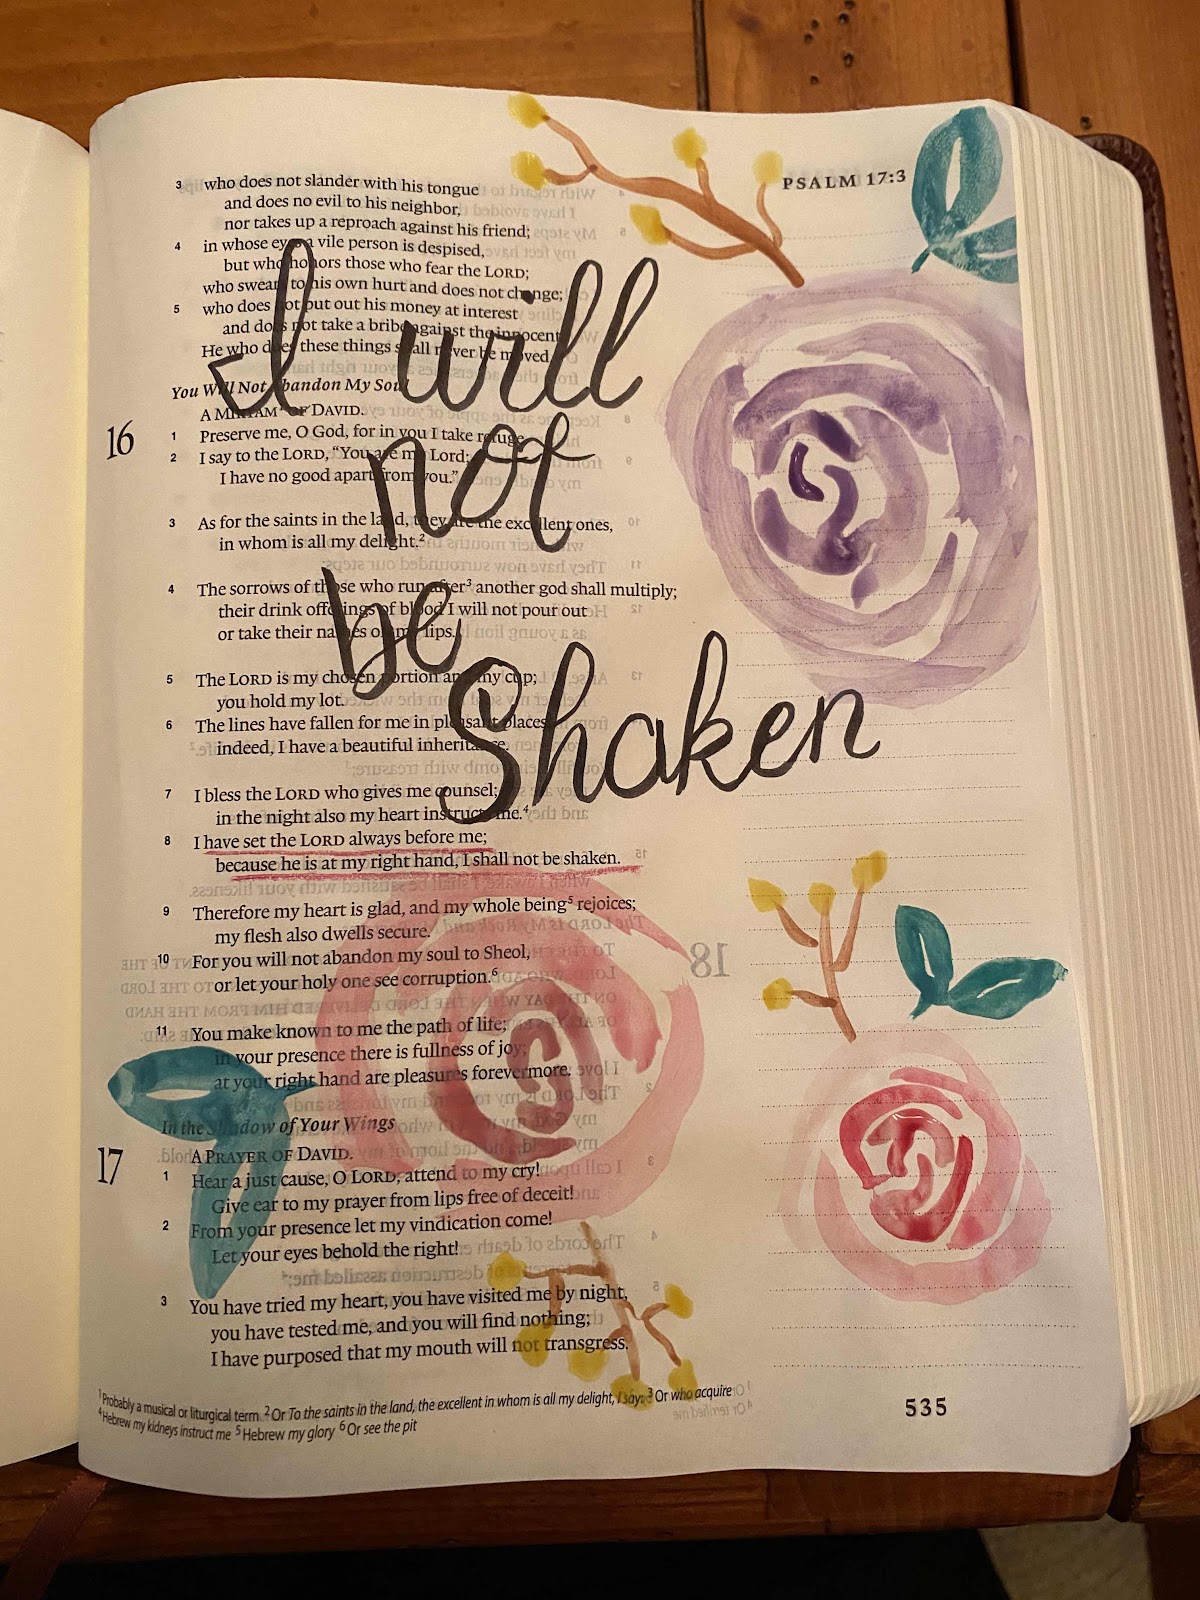 PSALM 17:3
3 who does not slander with his tongue
and does no evil to his neighbor,
nor takes up a reproach against his friend;
4 in whose eyes a vile person is despised,
but who honors those who fear the LORD;
who swears to his own hurt and does not change;
5 who does not put out his money at interest
and does not take a bribe against the innocent.
He who does these things shall never be moved.
I will
not
be
Shaken
You Will Not Abandon My Soul
16 A MIKTAM¹ OF DAVID.
1 Preserve me, O God, for in you I take refuge.
2 I say to the LORD, “You are my Lord;
I have no good apart from you.”
3 As for the saints in the land, they are the excellent ones,
in whom is all my delight.²
4 The sorrows of those who run after³ another god shall multiply;
their drink offerings of blood I will not pour out
or take their names on my lips.
5 The LORD is my chosen portion and my cup;
you hold my lot.
6 The lines have fallen for me in pleasant places;
indeed, I have a beautiful inheritance.
7 I bless the LORD who gives me counsel;
in the night also my heart instructs me.⁴
8 I have set the LORD always before me;
because he is at my right hand, I shall not be shaken.
9 Therefore my heart is glad, and my whole being⁵ rejoices;
my flesh also dwells secure.
10 For you will not abandon my soul to Sheol,
or let your holy one see corruption.⁶
11 You make known to me the path of life;
in your presence there is fullness of joy;
at your right hand are pleasures forevermore.
In the Shadow of Your Wings
17 A PRAYER OF DAVID.
1 Hear a just cause, O LORD; attend to my cry!
Give ear to my prayer from lips free of deceit!
2 From your presence let my vindication come!
Let your eyes behold the right!
3 You have tried my heart, you have visited me by night,
you have tested me, and you will find nothing;
I have purposed that my mouth will not transgress.
¹ Probably a musical or liturgical term ² Or To the saints in the land, the excellent in whom is all my delight, I say: ³ Or who acquire
⁴ Hebrew my kidneys instruct me ⁵ Hebrew my glory ⁶ Or see the pit
535